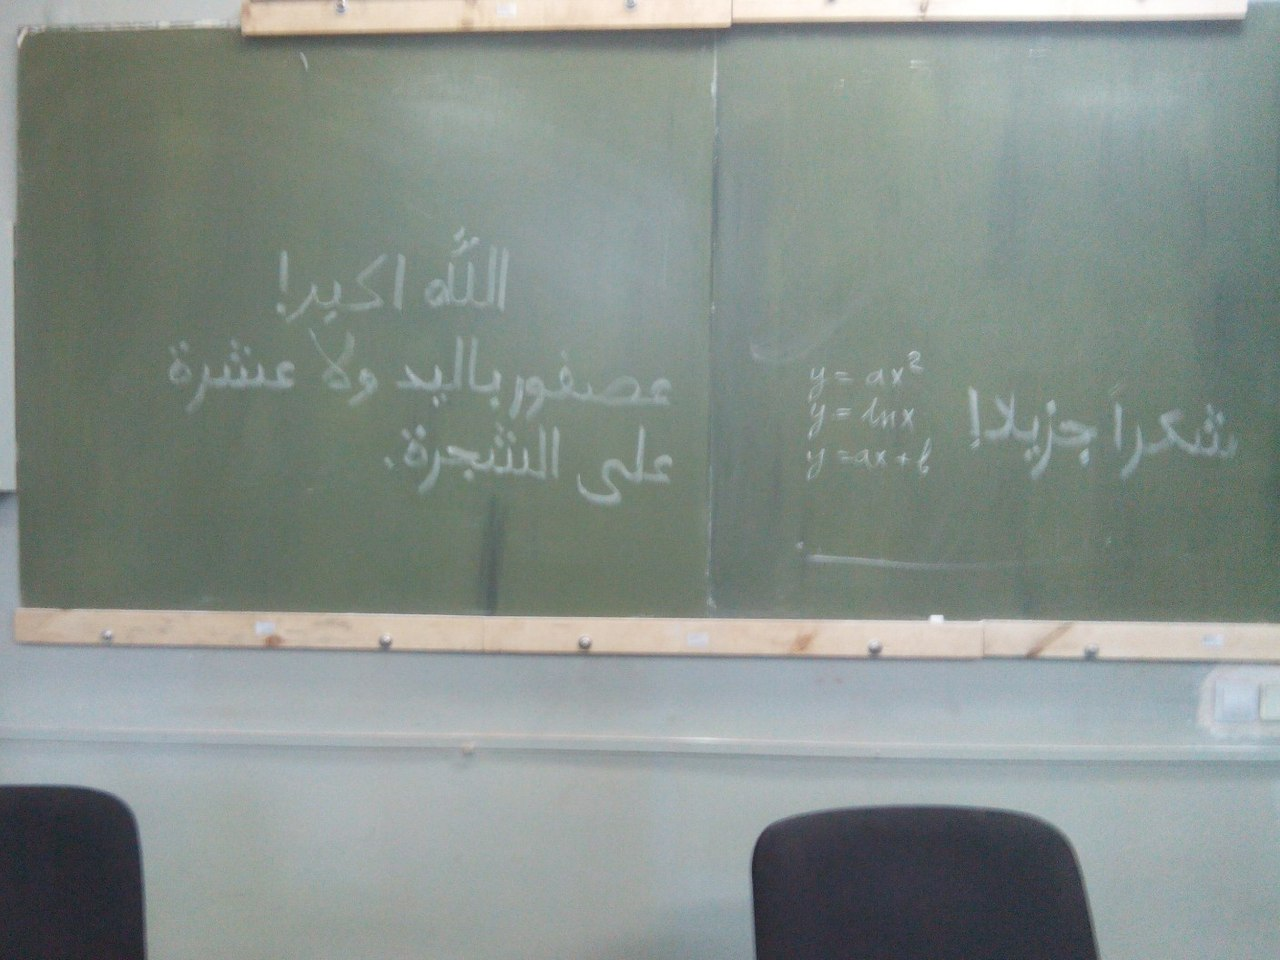 اللّٰه اكبر!
عصفور باليد ولا عشرة
على الشجرة.
y = ax²
y = ln x
y = ax + b
شكراً جزيلا!